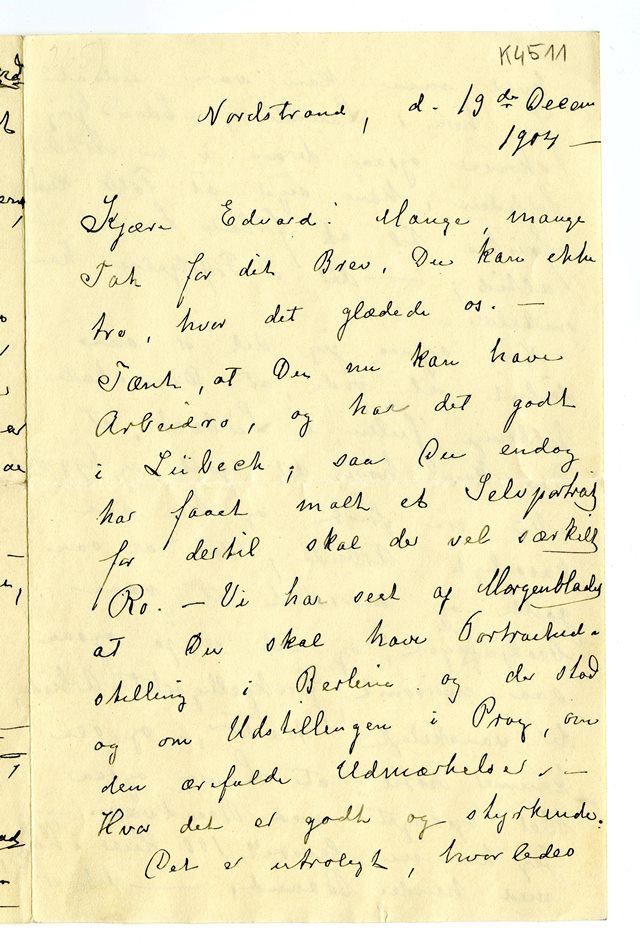 K4511
Nordstrand, d. 19de Decem
1904 –
Kjære Edvard! Mange, mange
Tak for dit Brev, Du kan ikke
tro, hvor det glædede os. –
Tænk, at Du nu kan have
Arbeidsro, og har det godt
i Lübeck, saa Du endog
har faaet malt et Selvportræt
for dertil skal der vel særkilt
Ro. – Vi har seet af Morgenbladet
at Du skal have Portrætud-
stilling i Berlin og der stod
og om Udstillingen i Prag, om
den ærefulde Udmærkelse, –
Hvor det er godt og styrkende.
Det er utroligt, hvorledes